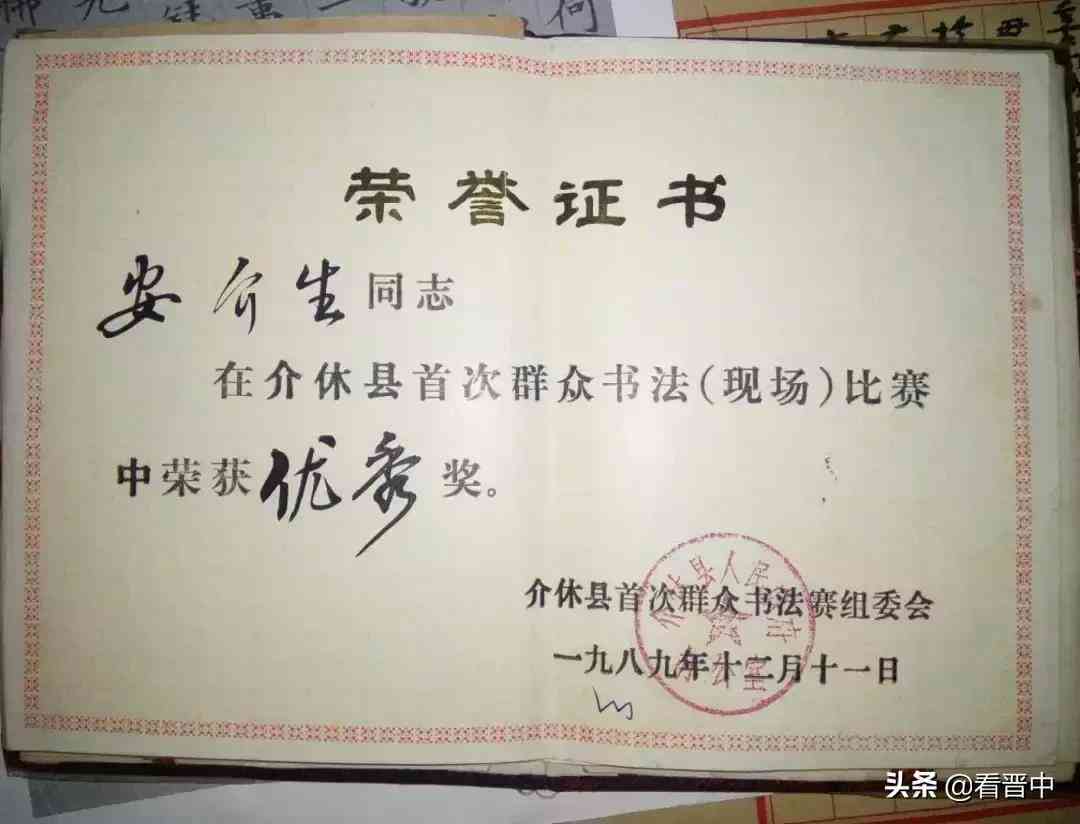 荣誉证书
安介生同志
在介休县首次群众书法(现场)比赛
中荣获优秀奖。
介休县首次群众书法赛组委会
一九八九年十二月十一日
介休县人民政府
办公室
头条 @看晋中